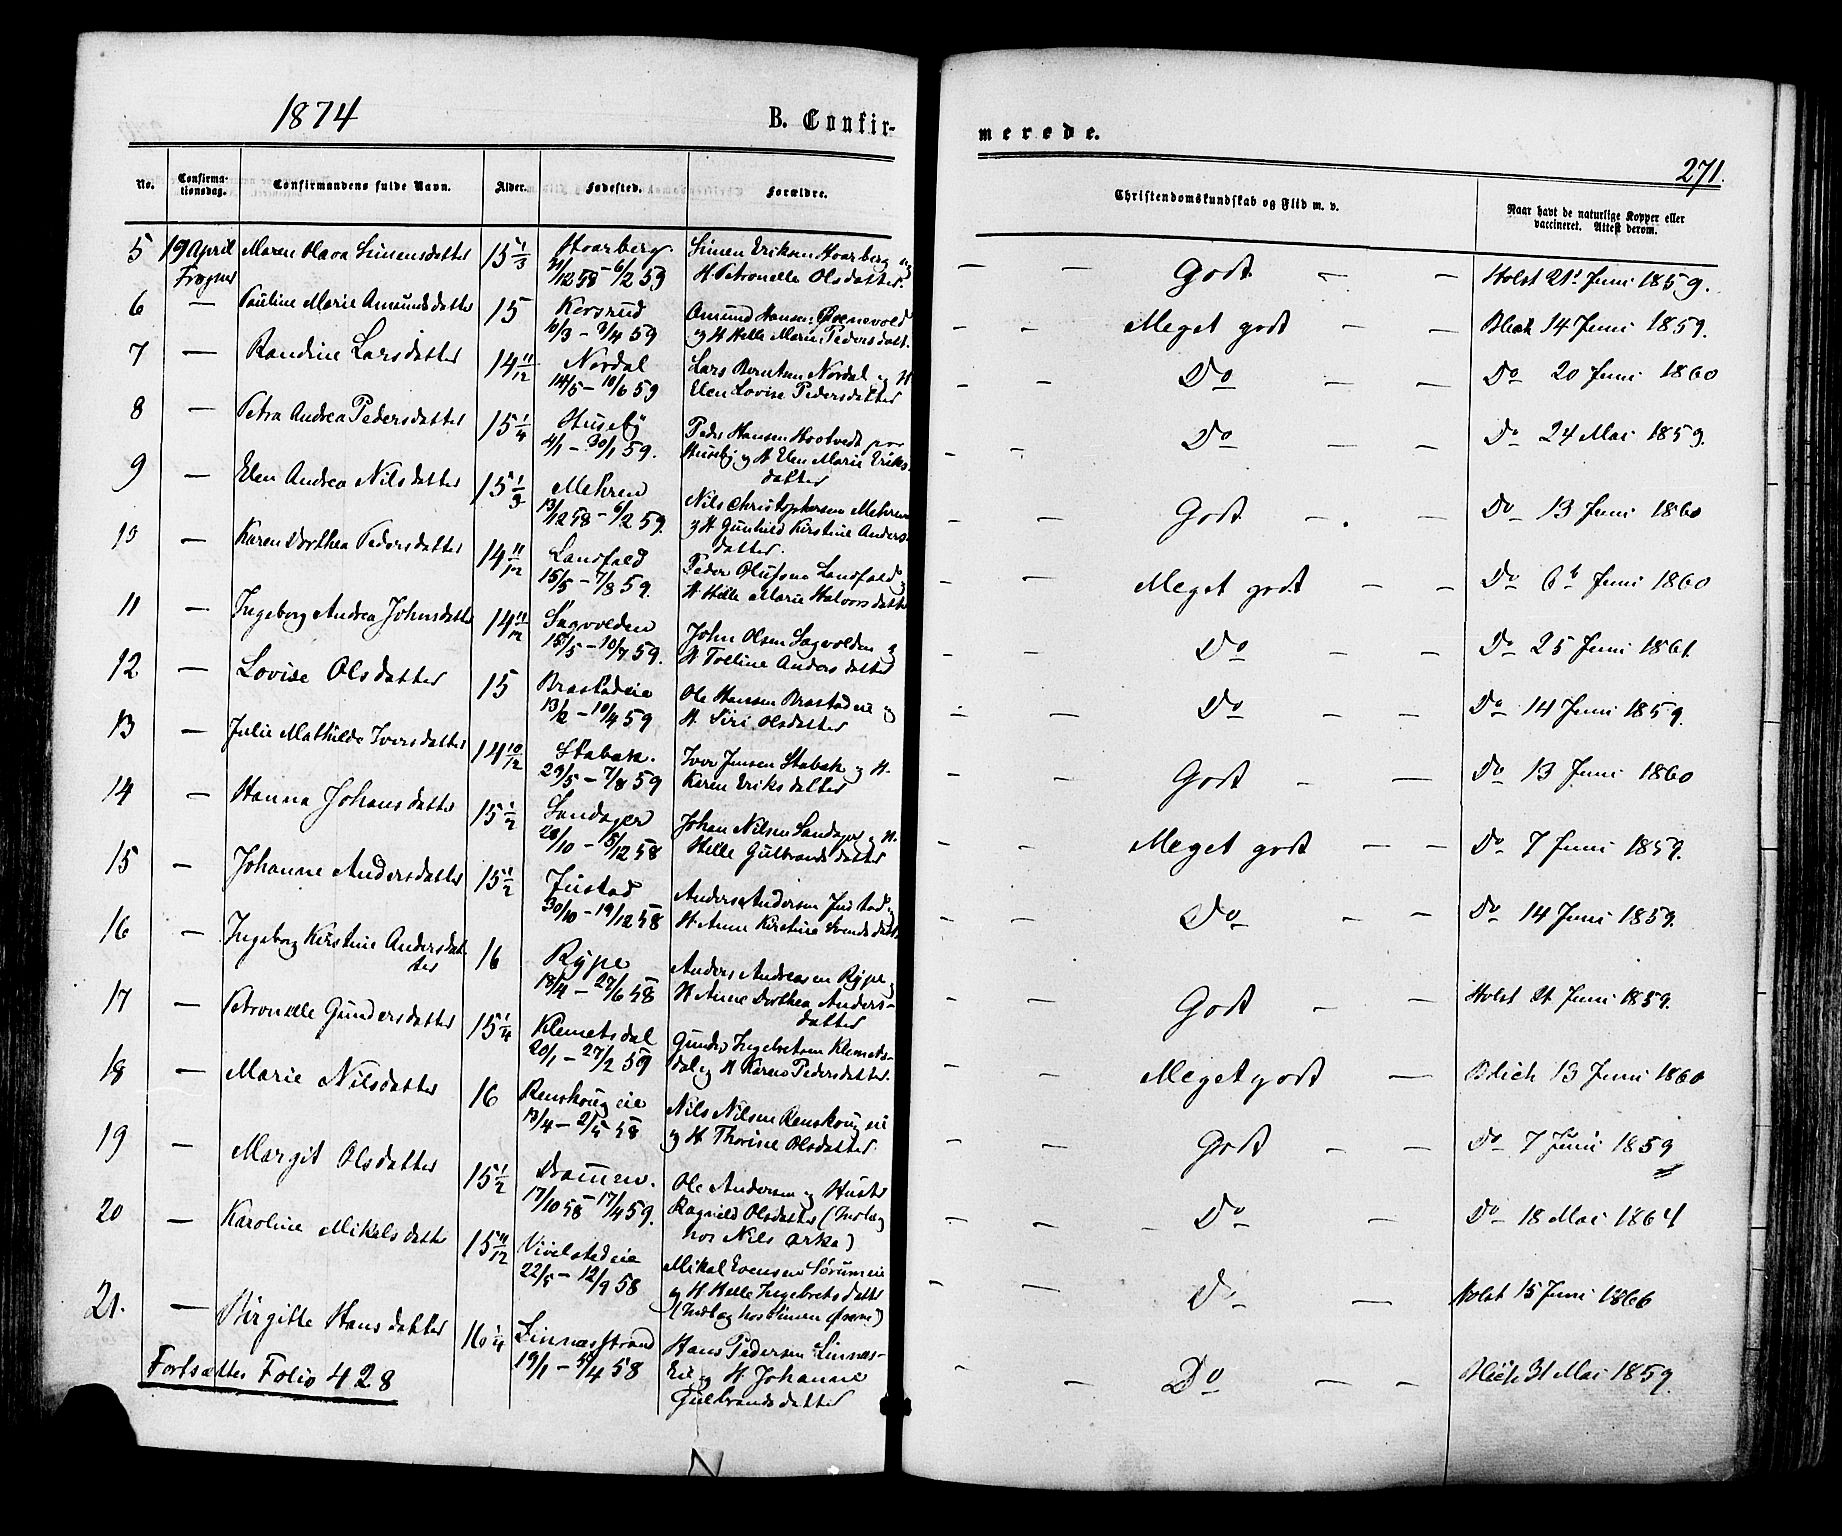 1874
B. Confir-
merede.
271.
No.
Confirma-
tionsdag.
Confirmandens fulde Navn.
Alder.
Fødested.
Forældre.
Christendomskundskab og Flid m. v.
Naar havt de naturlige Kopper eller
vaccineret. Attest derom.
5 19 April Maren Olava Simensdatter 15 1/3 Hvarberg Simen Eriksen Hvarberg og — — Godt — — Holst 21 Juni 1859.
Frogner 21/12 58 – 6/2 59 H. Petronelle Olsdatter.
6 — Pauline Marie Amundsdatter 15 Korsrud Amund Hansen — — Meget godt — — Blich 14 Juni 1859.
10/3 – 3/4 59 og H Helle Marie Pedersdatt.
7 — Randine Larsdatter 14 11/12 Nordal Lars Berntsen Nordal og H — — Do — — Do 20 Juni 1860
14/5 – 10/6 59 Elen Lovise Pedersdatter
8 — Petra Andrea Pedersdatter 15 1/4 Huseby Peder Hansen — — Do — — Do 24 Mai 1859.
4/1 – 30/1 59. Huseby og H Elen Marie Eriks-
datter
9 — Elen Andrea Nilsdatter 15 1/3 Mehren Nils Christophersen Mehren — — Godt — — Do 13 Juni 1860
13/12 58 – 6/2 59. og H Gunhild Kirstine Anders-
datter.
10 — Karen Dorthea Pedersdatter 14 11/12 Landfald Peder Olufsen Landfald og — — Meget godt — — Do 6 Juni 1860
15/5 – 7/8 59. H Helle Marie Halvorsdatter
11 — Ingeborg Andrea Johnsdatter 14 11/12 Sagvolden John Olsen Sagvolden og — — Do — — Do 25 Juni 1861.
15/5 – 10/7 59. H Torline Andersdatter
12 — Lovise Olsdatter 15 Brastadeie Ole Hansen Brastadeie og — — Do — — Do 14 Juni 1859.
13/2 – 10/4 59 H. Siri Olsdatter
13 — Julie Mathilde Iversdatter 14 10/12 Stabæk. Iver Jensen Stabæk og H. — — Godt — — Do 13 Juni 1860
29/5 – 7/8 59 Karen Eriksdatter
14 — Hanna Johansdatter 15 1/2 Sandager Johan Nilsen Sandager og H. — — Meget godt — — Do 7 Juni 1859.
28/10 – 5/12 58 Helle Gulbrandsdatter
15 — Johanne Andersdatter 15 1/2 Justad Anders Andersen Justad og — — Do — — Do 14 Juni 1859.
30/10 – 19/12 58 H. Anne Kirstine Svendsdatt.
16 — Ingeborg Kirstine Andersdat- 16 Rype Anders Andreasen Rype og — — Godt — — Holst 21 Juni 1859.
ter 18/4 – 27/6 58 H Anne Dorthea Anders-
datter
17 — Petronelle Gundersdatter 15 1/4 Klemetsdal Gunder Ingebretsen Klemets- — — Meget godt — Blich 13 Juni 1860
20/1 – 27/2 59 dal og H Karen Pedersdatter.
18 — Marie Nilsdatter 16 Renskoug eie Nils Nilsen Renskoug eie — — Godt — — Do 7 Juni 1859
13/4 – 2/5 58 og H Thorine Olsdatter.
19 — Margit Olsdatter 15 1/2 Drammen. Ole Andersen og Hustr — — Do — Do 18 Mai 1864
17/10 58 – 17/4 59. Ragnild Olsdatter (Indlag
hos Nils Arka)
20 — Karoline Mikalsdatter 15 11/12 Vivelstadeie Mikal Evensen Sørumeie — — D — Holst 15 Juni 1866
22/5 – 12/9 58 og H Helle Ingebretsdatter
(Indlag hos Simen)
21. — Birgitte Hansdatter 16 1/4 Linnesstrand Hans Pedersen Linnes- — — Do — — Blich 31 Mai 1859.
19/1 – 5/4 58 Eie og H Johanne
Gulbrandsdatter
Fortsætter Folio 428